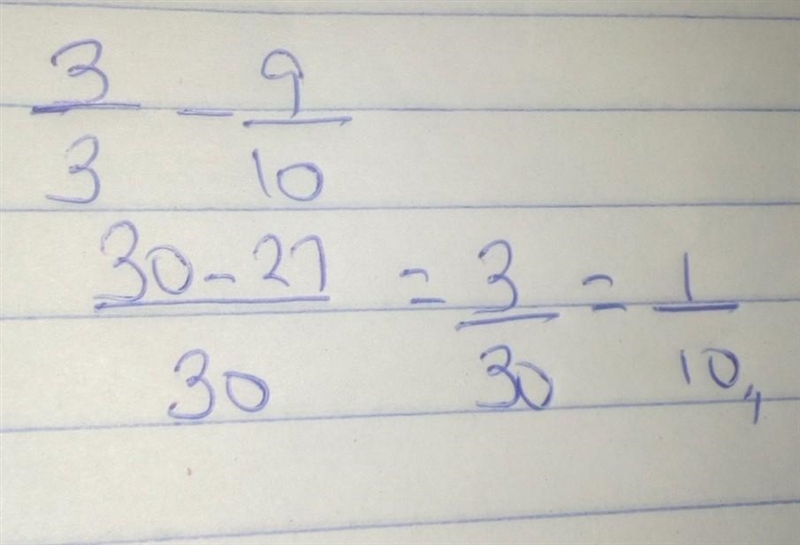 3/3 - 9/10
30-27/30 = 3/30 = 1/10